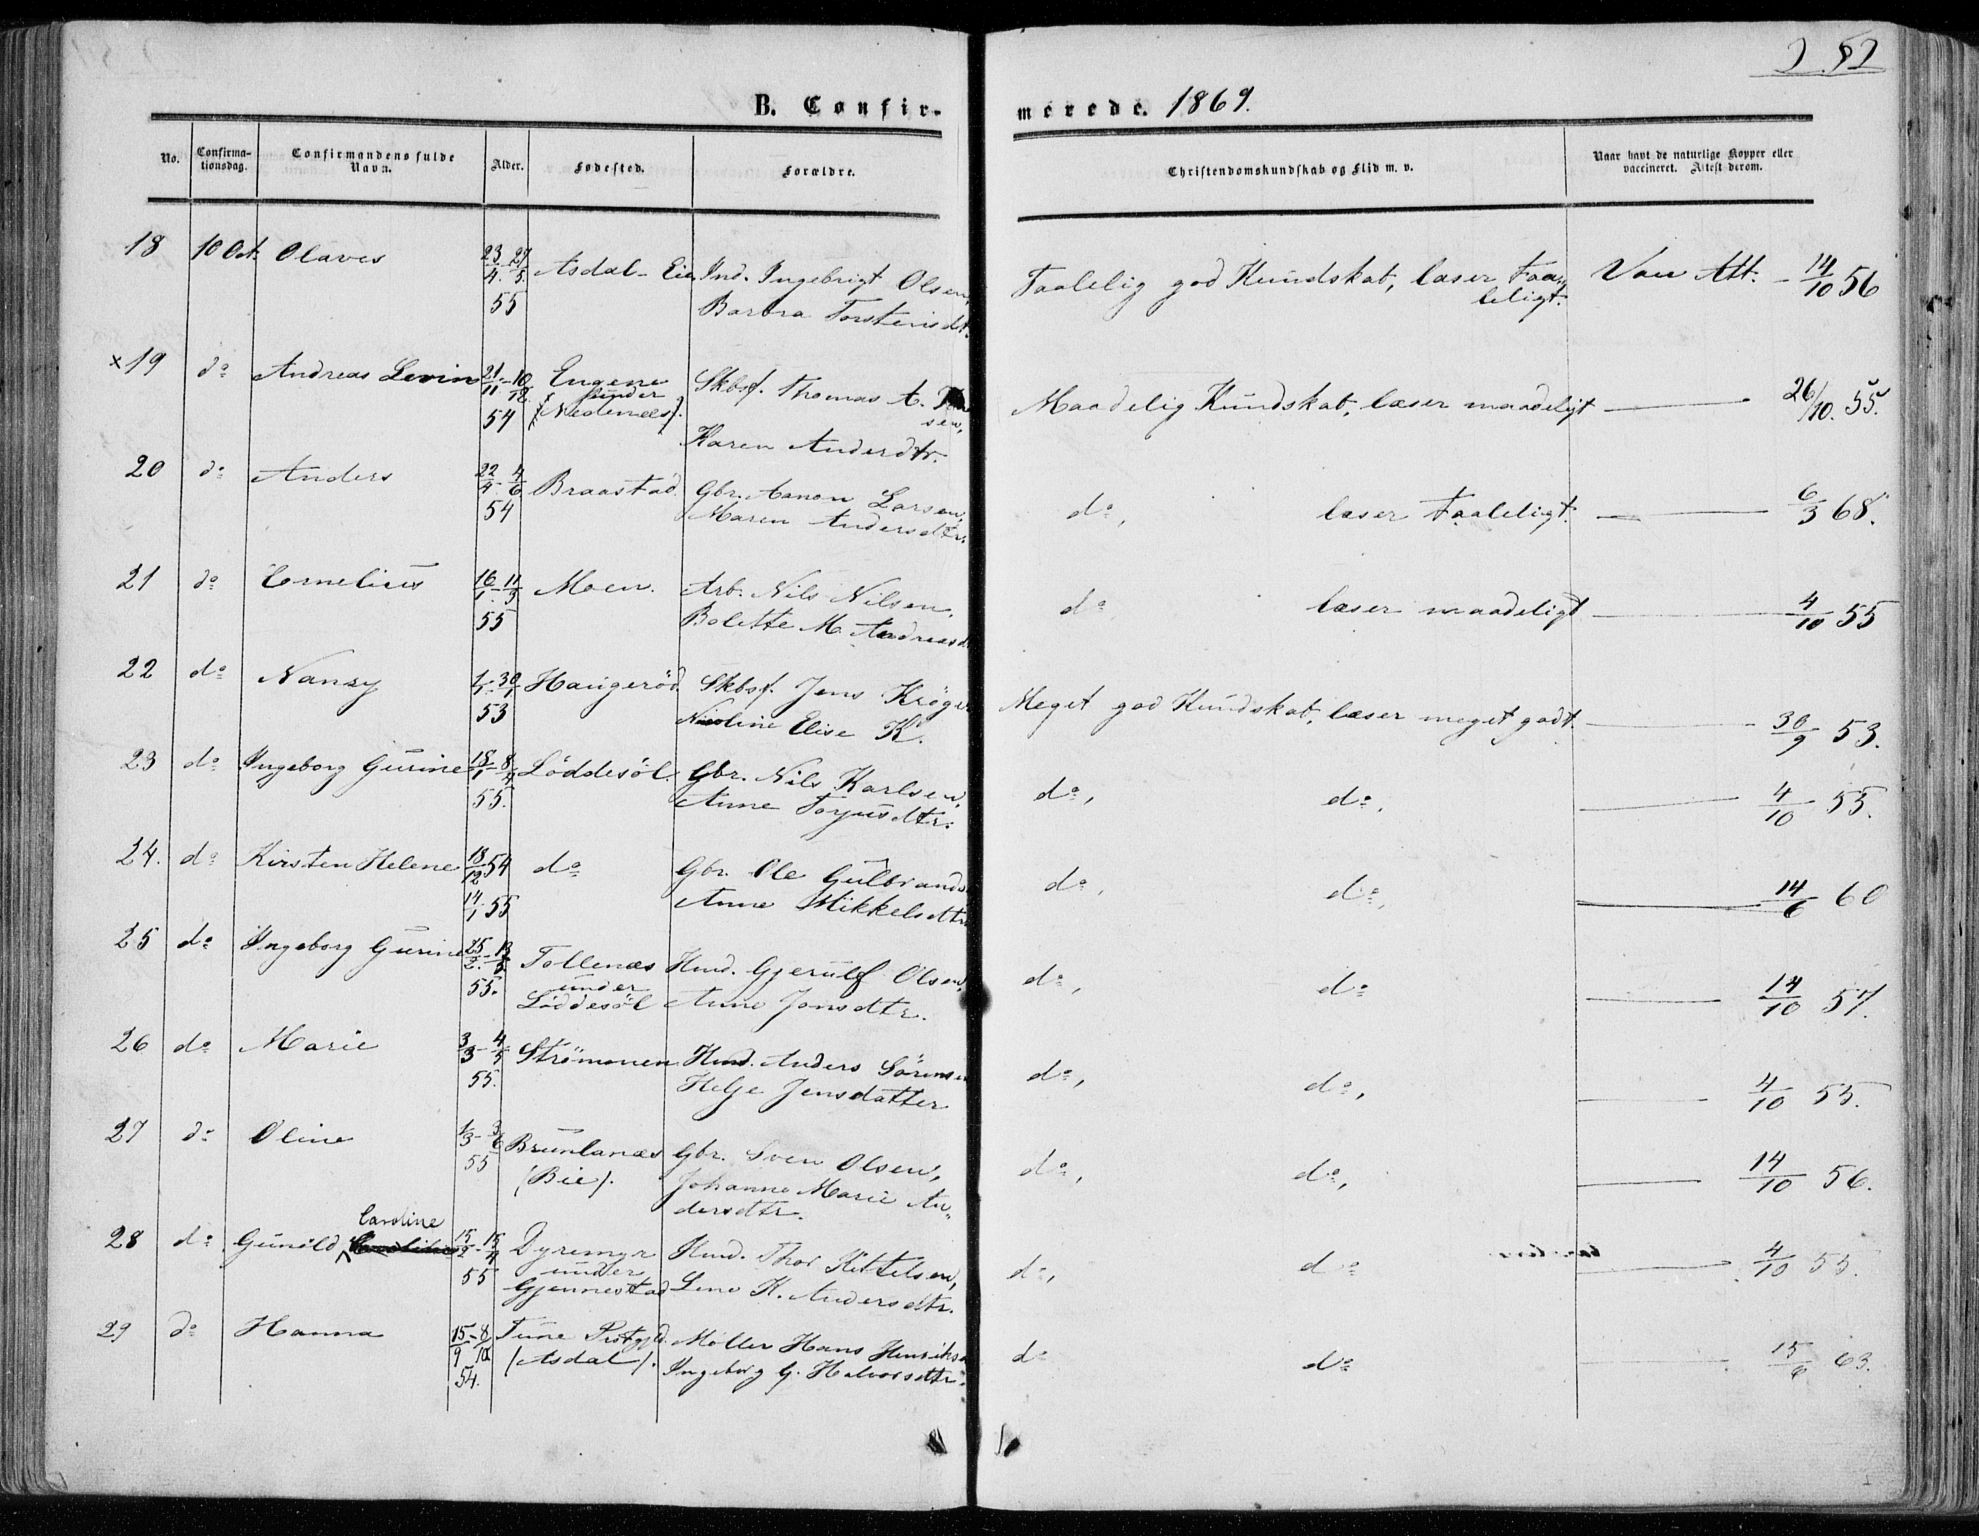 252
B. Confirmerede. 1869.
No. Confirmationsdag. Confirmandens fulde Navn. Alder. Fødested. Forældre. Christendomskundskab og Flid m. v. Naar havt de naturlige Kopper eller vaccineret. Attest derom.
18 10 Oct. Olaves 23/4 - 27/5 55 Asdal-Eie Ind. Ingebrigt Olsen, Taalelig god Kundskab, læser taa- Vau Att. - 14/10 56
Barbra Torstensdt. leligt.
×19 do Andreas Levin 21/11 - 10/12 54 Engene Skbsf. Thomas A.
under sen, Maadelig Kundskab, læser maadeligt — 26/10. 55.
(Nedenæs). Karen Andersdtr.
20 do Anders 22/4 - 4/6 54 Braastad Gbr. Aanon Larsen, do, læser taaleligt. — 6/3 68.
Maren Andersdtr.
21 do Cornelius 16/1 - 11/3 55 Moen. Arb. Nils Nilsen, do læser maadeligt — 4/10 55
Bolette M. Andreasd
22 do Nanzy 1/1 - 30/1 53 Haugerød Skbsf. Jens Krøger Meget god Kundskab, læser meget godt. — 30/9 53.
Nicoline Elise K.
23 do Ingeborg Gurine 18/1 - 8/4 55. Løddesøl. Gbr. Nils Karlsen, do, do, — 4/10 55.
Anne Torjusdtr.
24. do Kirsten Helene 18/12 54 do Gbr. Ole Gulbrands do, do, — 14/6 60
14/1 55 Anne Mikkelsdtr
25 do Ingeborg Gurine 25/2 - 55. Tollenæs Husd. Gjerulf Olsen, do, do — 14/10 57.
under
Løddesøl Anne Jonsdtr.
26 do Marie 3/3 - 4/5 55. Strømmen Husd. Anders Sørensen do, do, — 4/10 55.
Helje Jensdatter
27 do Oline 1/3 - 3/6 55 Brunlanæs Gbr. Sven Olsen, do, do, — 14/10 56.
(Bie). Johanne Marie An-
dersdtr.
Caroline
28 do Gunild 15/2 - 15/4 55 Dyremyr Husd. Thor Kittelsen, do, do — 4/10 55.
under
Gjennestad Lene K. Andersdtr.
29 do Hanna 15/9 - 8/10 54. Tune Prstgjld. Møller Hans Henriks do do — 15/6 63.
(Asdal). Ingeborg G. Halvorsdtr.